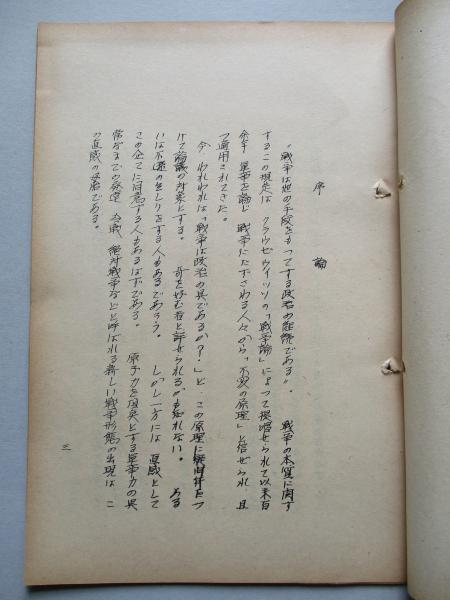 序　論
"戦争は他の手段をもってする政治の継続である"。　戦争の本質に関す
するこの規定は クラウゼヴィッツの「戦争論」によって提唱せられて以来百
余年 軍事を論じ 戦争にたずさわる人々から、「不変の原理」と信ぜられ 且
つ適用されてきた。
今 われわれは、「戦争は政治の具であるか？」と、この原理に疑問符をつ
けて論議の対象とする。　奇を好む者と評せられるかも知れない。　ある
いは不遜の
をする人もあるであろう。　しかし一方には 直感として
この企てに同意する人もあるはずである。　原子力を凶器とする軍事力の異
常なまでの発達 冷戦 絶対戦争などと呼ばれる新しい戦争形態の出現は こ
の直感の母胎である。
三